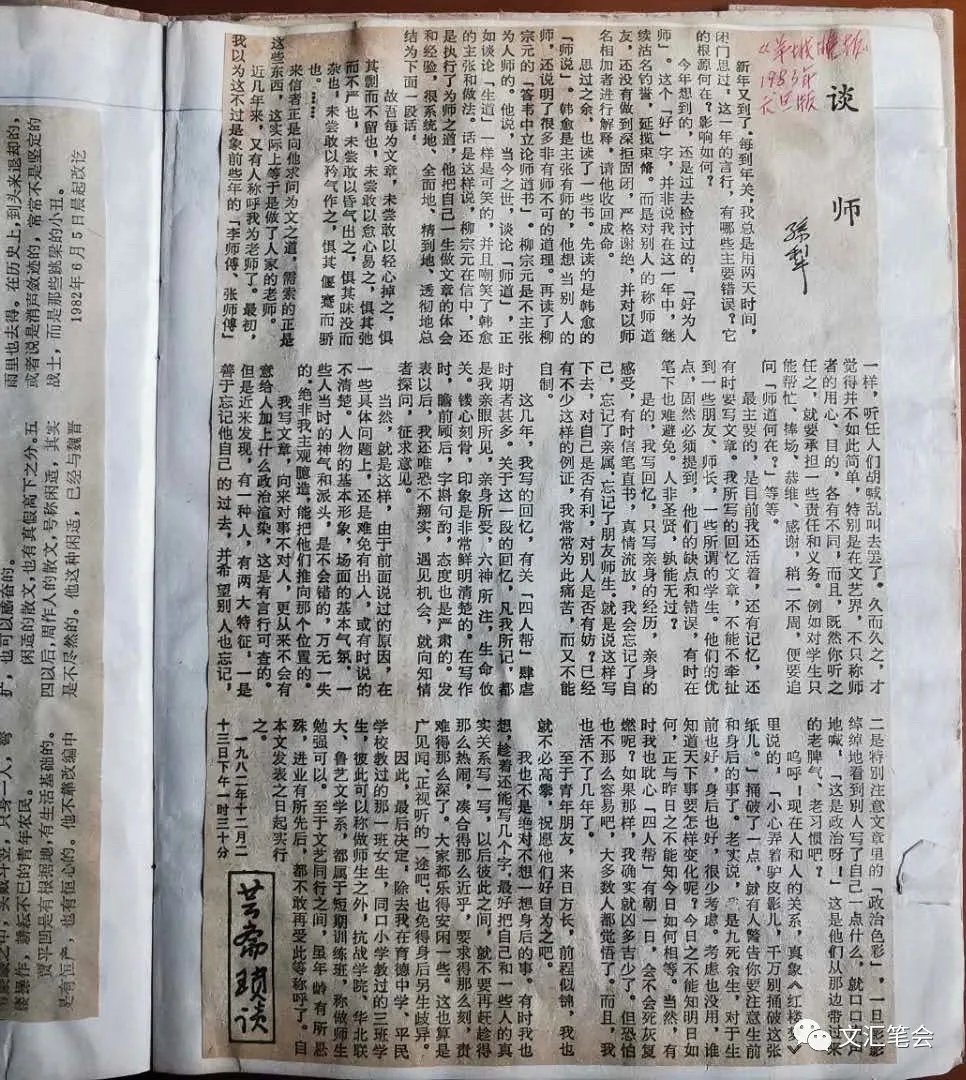 谈师
孙犁
《羊城晚报》
1983年
元旦版
新年又到了。每到年关，我总是用两天时间，
闭门思过，这一年的言行，有哪些主要错误？它
的根源何在？影响如何？
今年想到的，还是过去检讨过的，“好为人
师”。这个“好”字，并非说我在这一年中，继
续沽名钓誉，延揽束脩。而是对别人的称师道
友，还没有做到深拒固闭，严格谢绝，并对以师
名相加者进行解释，请他收回成命。
思过之余，也读了一些书。先读的是韩愈的
“师说”。韩愈是主张有师的，他想当别人的
师，还说明了很多非有师不可的道理。再读了柳
宗元的“答韦中立论师道书”。柳宗元是不主张
为人师的。他说，当今之世，谈论“师道”，正
如谈论“生道”一样是可笑的，并且嘲笑了韩愈
的主张和做法。话是这样说，柳宗元在信中，还
是执行了为师之道，他把自己一生做文章的体会
和经验，很系统地、全面地、精到地、透彻地总
结为下面一段话：
故吾每为文章，未尝敢以轻心掉之，惧
其剽而不留也，未尝敢以怠心易之，惧其弛
而不严也，未尝敢以昏气出之，惧其昧没而
杂也，未尝敢以矜气作之，惧其偃蹇而骄
也。……
来信者正是向他求问为文之道，需索的正是
这些东西，这实际上等于是做了人家的老师。
近几年来，又有人称呼我为老师了。最初，
我以为这不过是象前些年的“李师傅、张师傅”
一样，听任人们胡喊乱叫去罢了。久而久之，才
觉得并不如此简单，特别是在文艺界，不只称师
者的用心、目的，各有不同，而且，既然你听之
任之，就要承担一些责任和义务。例如对学生只
能帮忙、捧场、恭维、感谢，稍一不周，便要追
问“师道何在？”等等。
最主要的，是目前我还活着，还有记忆，还
有时要写文章。我所写的回忆文章，不能不牵扯
到一些朋友、师长，一些所谓的学生。他们的优
点，固然必须提到，他们的缺点和错误，有时在
笔下也难避免。人非圣贤，孰能无过？
是的，我写回忆，只写亲身的经历，亲身的
感受，有时信笔直书，真情流放，我会忘记了自
己，忘记了亲属，忘记了朋友师生。就是说这样写
下去，对自己是否有利，对别人是否有妨？已经
有不少这样的例证，我常常为此痛苦，而又不能
自制。
这几年，我写的回忆，有关“四人帮”肆虐
时期者甚多。关于这一段的回忆，凡我所记，都
是我亲眼所见，亲身所受，六神所注，生命攸
关。镂心刻骨，印象是非常鲜明清楚的。在写作
时，瞻前顾后，字斟句酌，态度也是严肃的。发
表以后，我还唯恐不翔实，遇见机会，就向知情
者探问，征求意见。
当然，就是这样，由于前面说过的原因，在
一些具体问题上，还是难免有出入，或有时说的
不清楚。人物的基本形象，场面的基本气氛，一
些人当时的神气和派头，是不会错的，万无一失
的。绝非我主观臆造，能把他们推向那个位置的。
我写文章，向来对事不对人，更从来不会有
意给人加上什么政治渲染，这是有言行可查的。
但是近来发现，有一种人，有两大特征，一是
善于忘记他自己的过去，并希望别人也忘记，
二是特别注意文章里的“政治色彩”，一旦影影
绰绰地看到别人写了自己一点什么，就口口声声
地喊，“这是政治呀！”这是他们从那边带过来
的老脾气、老习惯吧？
呜呼！现在人和人的关系，真象《红楼梦》
里说的，“小心弄着驴皮影儿，千万别捅破这张
纸儿。”捅破了一点，就有人警告你要注意生前
和身后的事了。老实说，我是九死余生，对于生
前也好，身后也好，很少考虑。考虑也没用，谁
知道天下事要怎样变化呢？今日之不能知明日如
何，正与昨日之不能知今日如何相等。当然，有
时我也耽心，“四人帮”有朝一日，会不会死灰复
燃呢？如果那样，我确实就凶多吉少了。但恐怕
也不那么容易吧，大多数人都觉悟了。而且，我
也活不了几年了。
至于青年朋友，来日方长，前程似锦，我也
就不必高攀，祝愿他们好自为之吧。
我也不是绝对不想一想身后的事。有时我也
想，趁着还能写几个字，最好把自己和一些人的真
实关系写一写，以后彼此之间，就不要再赶趁得
那么热闹，凑合得那么近乎，要求得那么刻，责
难得那么深了。大家都乐得安闲一些。这也算是
广见闻、正视听的一途吧，也免得身后另生歧异。
因此，最后决定：除去我在育德中学、平民
学校教过的那一班女生，同口小学教过的三班学
生，彼此可以称做师生之外，抗战学院、华北联
大、鲁艺文学系，都属于短期训练班，称做师生
勉强可以。至于文艺同行之间，虽年龄有所悬
殊，进业有所先后，都不敢再受此等称呼了。自
本文发表之日起实行
之。
一九八二年十二月二
十三日下午一时三十分
芸斋琐谈
雨里也去得。在历史上，到头来退却的，
或者说是消声敛迹的，常常不是坚定的
战士，而是那些跳梁的小丑。
1982年6月5日晨起改讫
扩，也可以感奋的。
闲适的散文，也有真假高下之分。五
四以后，周作人的散文，号称闲适，其实
是不尽然的。他这种闲适，已经与魏晋
操作，耕耘不已的青年农民。
贾平凹是有根据地，有生活基础的。
是有恒产，也有恒心的。他不靠改编中
文汇笔会